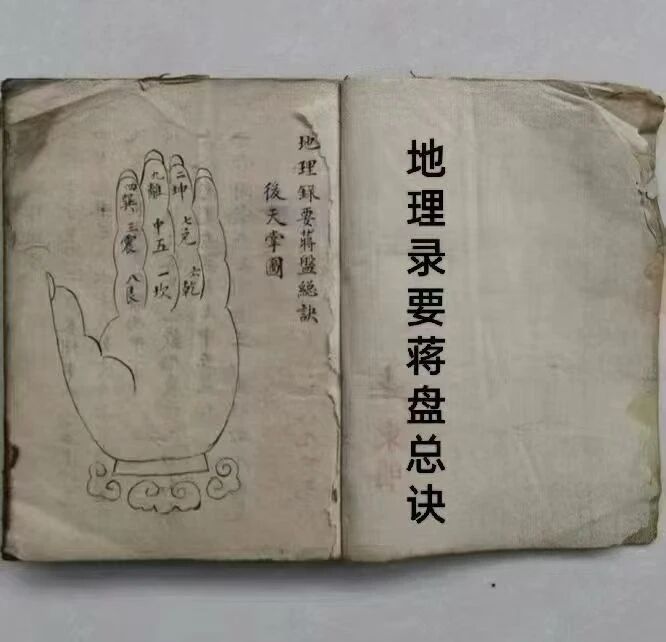 地理录要蒋盘总诀
地理録要蔣盤總訣
後天掌圖
二坤
七兌
六乾
九離
中五
一坎
四巽
三震
八艮